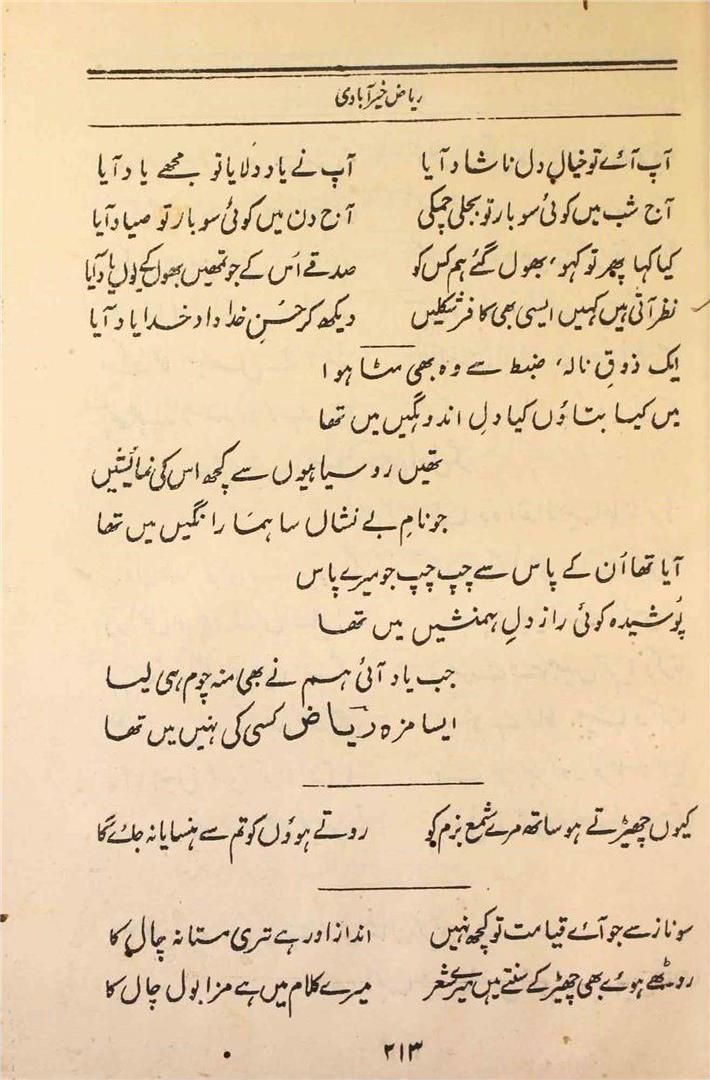 ریاض خیرآبادی
آپ آئے تو خیالِ دل ناشاد آیا آپ نے یاد دلایا تو مجھے یاد آیا
آج شب میں کوئی سو بار تو بجلی چمکی آج دن میں کوئی سو بار تو صیاد آیا
کیا کہا پھر تو کہو، بھول گئے ہم کس کو صدقے اُس کے جو تمھیں بھول کے یوں یاد آیا
نظر آتی ہیں کہیں ایسی بھی کافر شکلیں دیکھ کر حُسنِ خداداد خدا یاد آیا
ایک ذوقِ نالہ، ضبط سے وہ بھی مٹا ہوا
میں کیا بتاؤں کیا دلِ اندوہگیں میں تھا
تھیں روسیاہیوں سے کچھ اس کی نمائیشیں
جو نامِ بے نشاں سا ہمارا نگیں میں تھا
آیا تھا اُن کے پاس سے چپ چپ جو میرے پاس
پُوشیدہ کوئی راز دلِ ہمنشیں میں تھا
جب یاد آئی ہم نے بھی منہ چوم ہی لیا
ایسا مزہ ریاض کسی کی نہیں میں تھا
کیوں چھیڑتے ہو ساتھ مرے شمع بزم کو روتے ہوؤں کو تم سے ہنسایا نہ جائے گا
سو ناز سے جو آئے قیامت تو کچھ نہیں انداز اور ہے تری مستانہ چال کا
روٹھے ہوئے بھی چھیڑ کے سنتے ہیں میرے شعر میرے کلام میں ہے مزا بول چال کا
۲۱۳